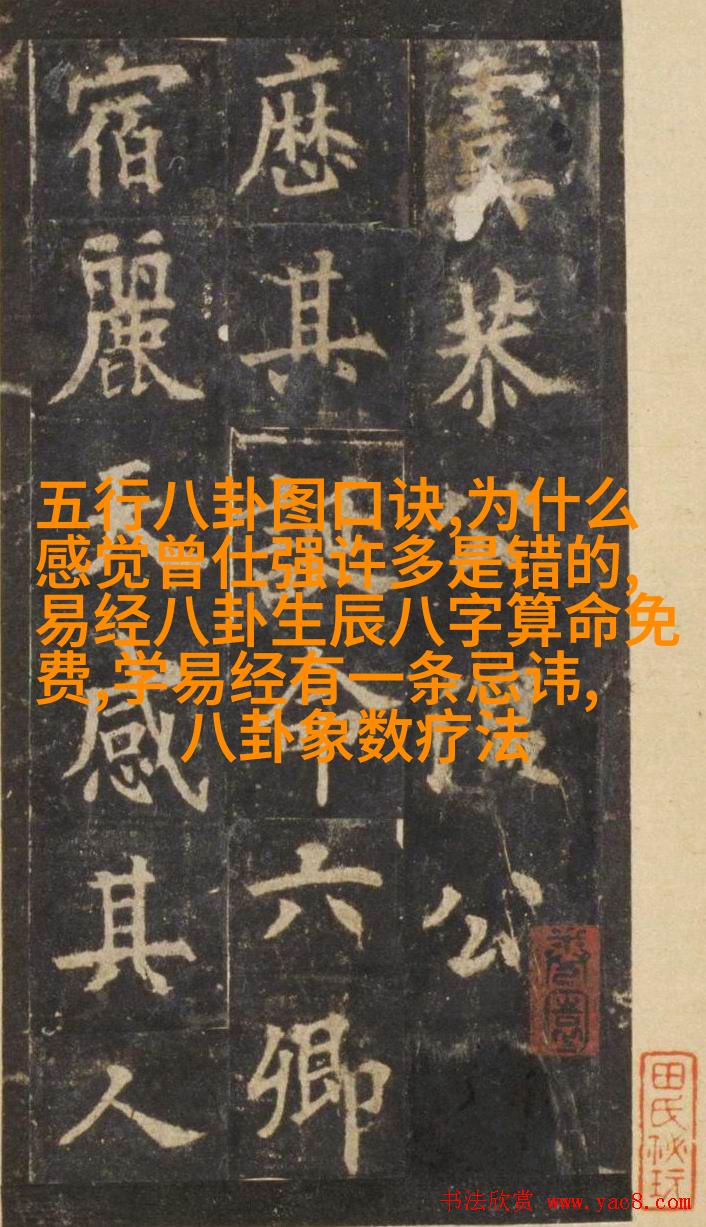 恭公公
歷其六卿
宿麗天感其人
五行八卦图口诀,为什么
感觉曾仕强许多是错的,
易经八卦生辰八字算命免
费,学易经有一条忌讳,
八卦象数疗法
田氏秘玩
书法欣赏 www.yac8.com